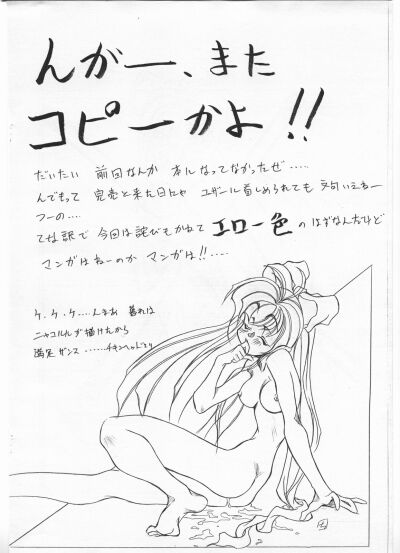 んがー、また
コピーかよ!!
だいたい 前回なんか 本になってなかったぜ.....
んでもって 完売と来た日にゃ ユザール首しめられても 文句いえねー
つーの....
てな訳で 今回は詫びもかねて エロ一色 のはずなんだけど
マンガはねーのか マンガは!!....
ケ.ケ.ケ....んまあ 暮れは
ニャコルルが描けたから
満足ザンス ......チキンへっへとり